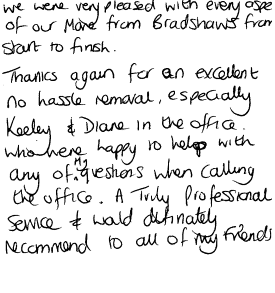 we were very pleased with every aspe
of our Move from Bradshaws from
Start to finish.
Thanks again for an excellent
no hassle removal, especially
Keeley & Diane in the office.
who were happy to help with
any of my questions when calling
the office. A Truly Professional
Service & would definately
recommend to all of my Friends